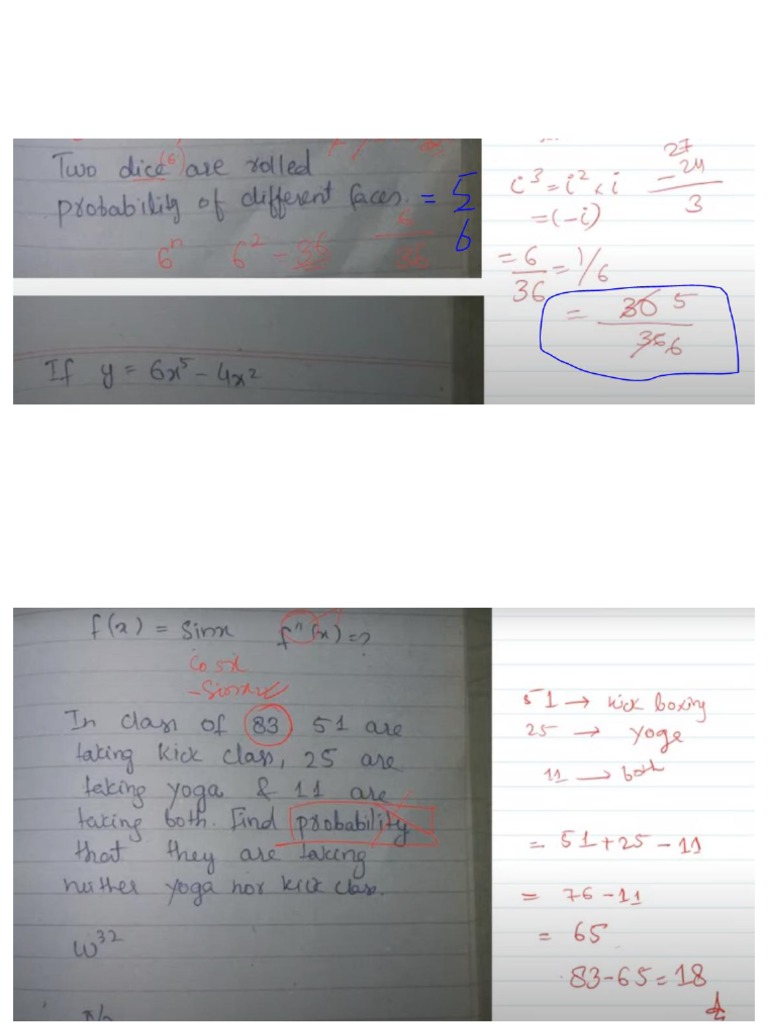 Two dice (6) are rolled
probability of different faces. = 5
6
6ⁿ 6² - 36 6
36
If y = 6x⁵ - 4x²
27
- 24
3
i³ = i² × i
= (-i)
= 6
36
= 1/6
= 30 5
36 6
f(x) = sinx fⁿ(x) = ?
Cosx
-Sinx
In class of 83 51 are
taking kick class, 25 are
teking yoga & 11 are
taking both. Find probability
that they are taking
nuther yoga nor kick class.
ω³²
51 → kick boxing
25 → yoge
11 → both
= 51 + 25 - 11
= 76 - 11
= 65
83 - 65 = 18